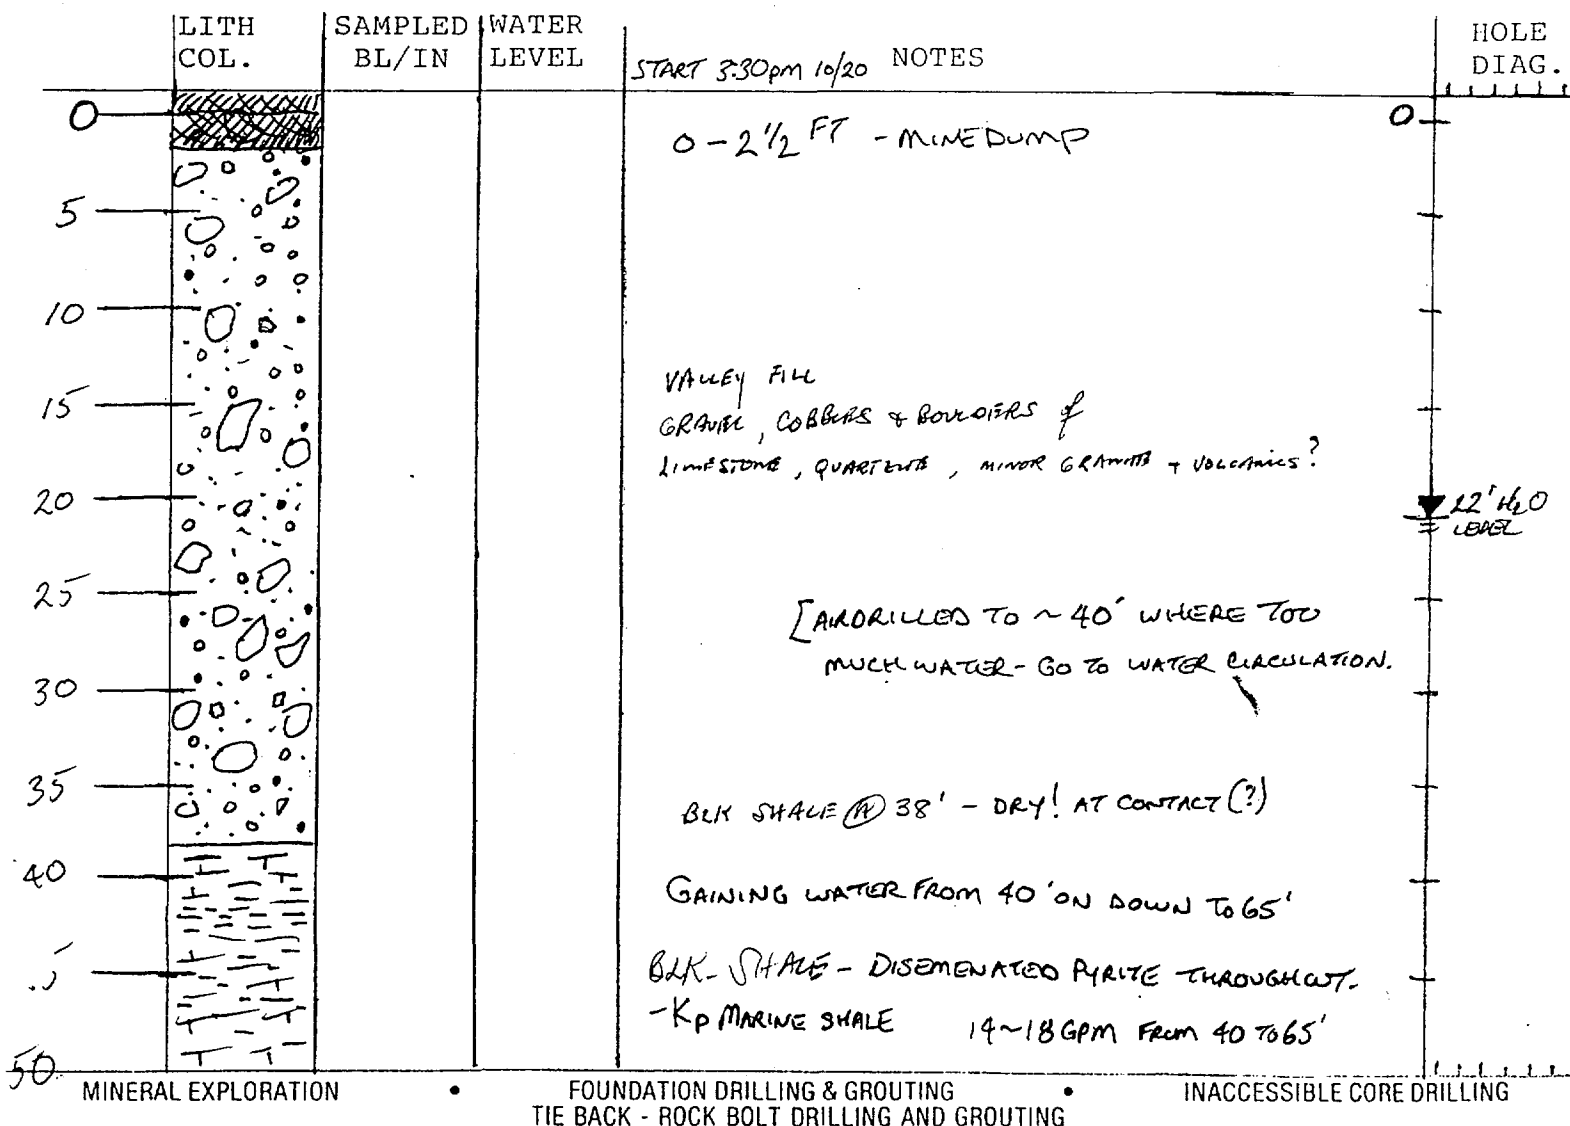 LITH COL.
SAMPLED BL/IN
WATER LEVEL
START 3:30pm 10/20 NOTES
HOLE DIAG.
0
0
0 - 2 1/2 FT - MINE DUMP
5
10
VALLEY FILL
15
GRAVEL, COBBERS & BOULDERS of
LIMESTONE, QUARTZITE, MINOR GRANITE + VOLCANICS?
20
22' H2O
LEVEL
25
[AIRDRILLED TO ~ 40' WHERE TOO
MUCH WATER - GO TO WATER CIRCULATION.
30
35
BLK SHALE @ 38' - DRY! AT CONTACT (?)
40
GAINING WATER FROM 40' ON DOWN TO 65'
BLK - SHALE - DISEMENATED PYRITE THROUGHOUT.
5
-Kp MARINE SHALE 14~18 GPM FROM 40 TO 65'
50
MINERAL EXPLORATION • FOUNDATION DRILLING & GROUTING • INACCESSIBLE CORE DRILLING
TIE BACK - ROCK BOLT DRILLING AND GROUTING